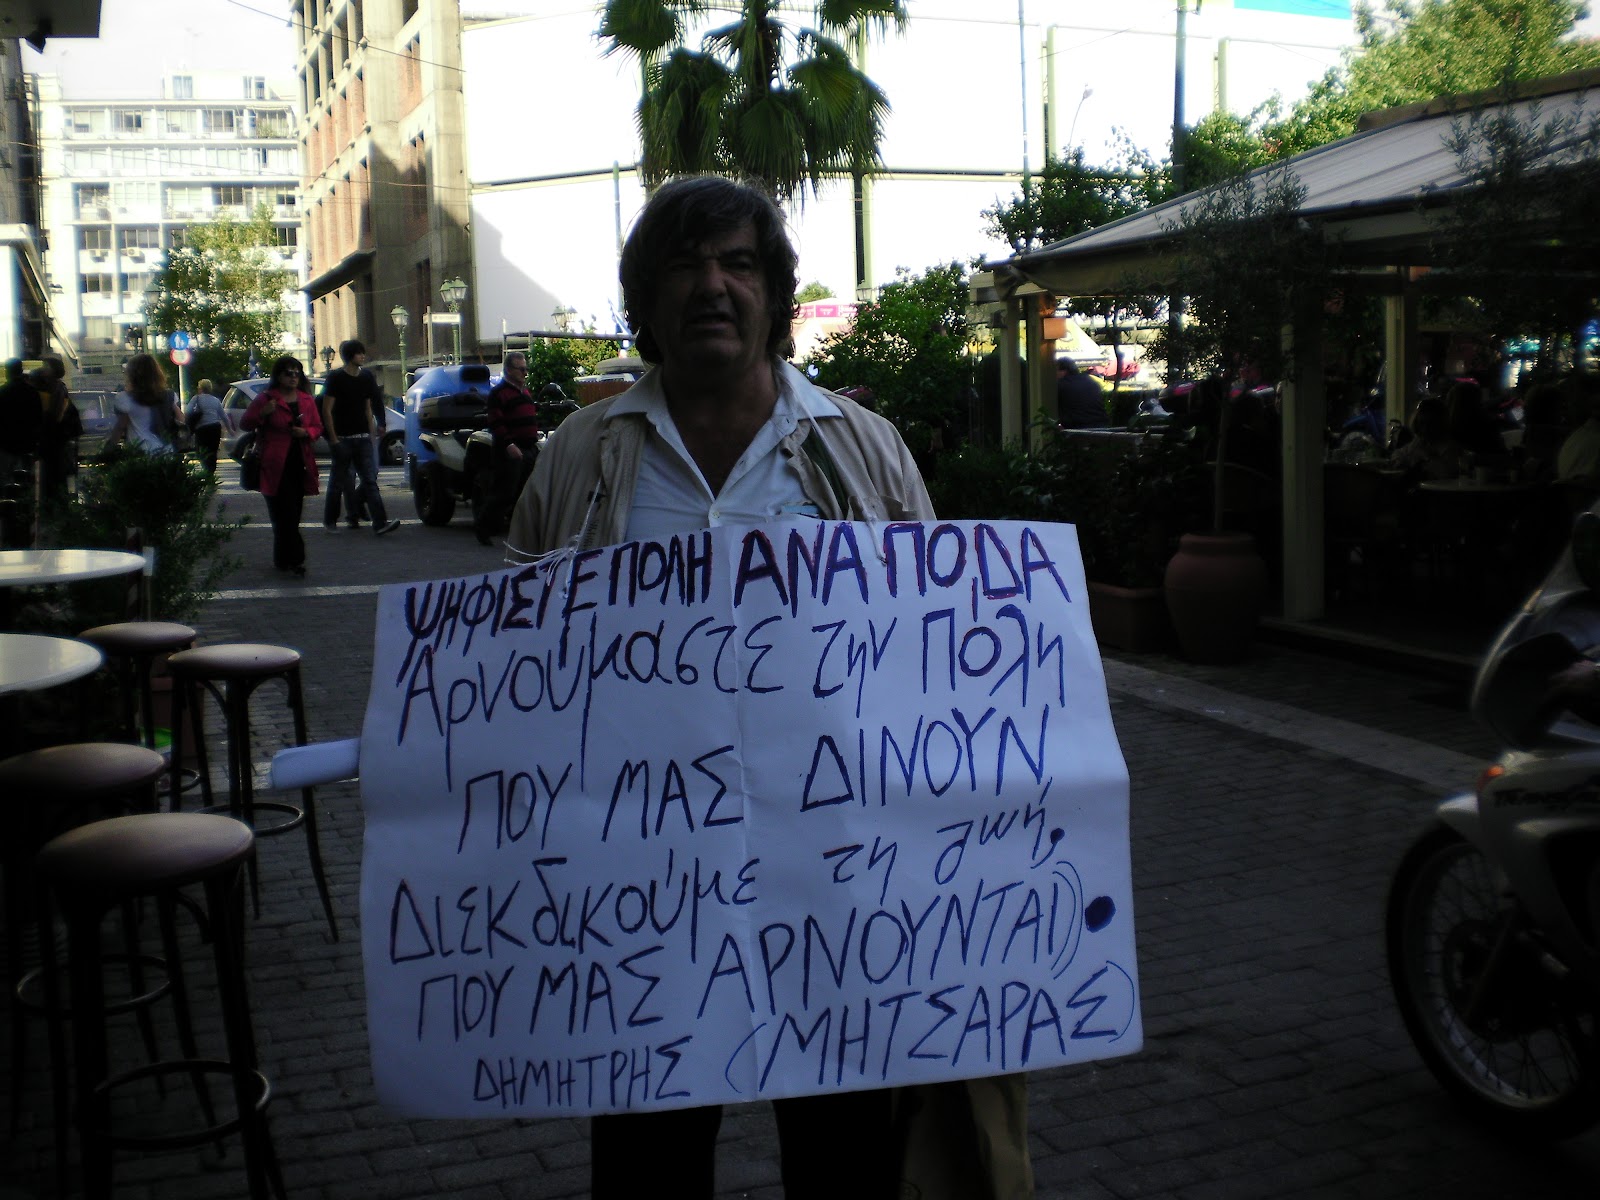 ΨΗΦΙΣΤΕ ΠΟΛΗ ΑΝΑΠΟΔΑ
Αρνούμαστε την Πόλη
ΠΟΥ ΜΑΣ ΔΙΝΟΥΝ
Διεκδικούμε τη ζωή,
ΠΟΥ ΜΑΣ ΑΡΝΟΥΝΤΑΙ).
ΔΗΜΗΤΡΗΣ (ΜΗΤΣΑΡΑΣ)